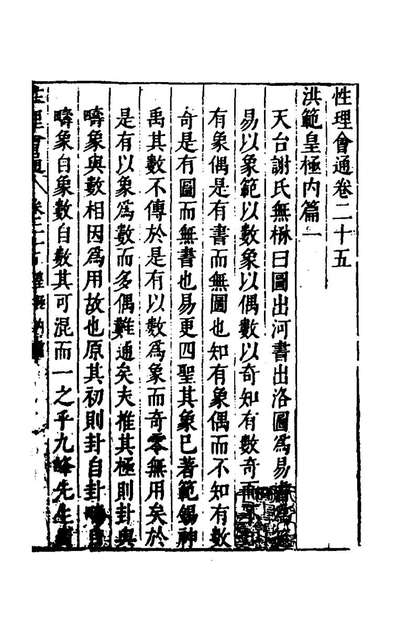 性理會通卷二十五
洪範皇極内篇一
天台謝氏無楙曰圖出河書出洛圖為易
易以象範以數象以偶數以奇知有數奇而
有象偶是有書而無圖也知有象偶而不知有數
奇是有圖而無書也易更四聖其象已著範錫神
禹其數不傳於是有以數為象而奇零無用矣於
是有以象為數而多偶難通矣夫推其極則卦與
疇象與數相因為用故也原其初則卦自卦疇自
疇象自象數自數其可混而一之乎九峰先生
性理會通 卷二十五